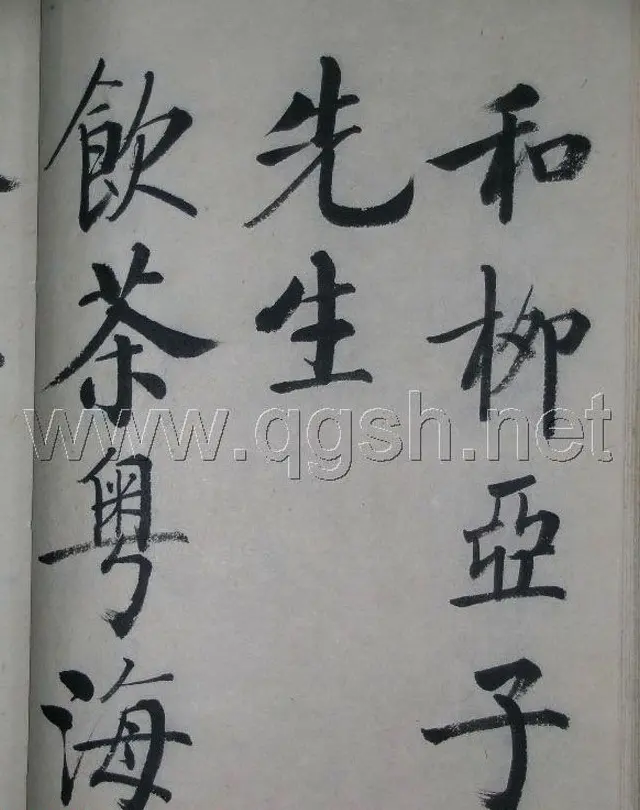 和柳亞子
先生
飲茶粤海
www.qgsh.net